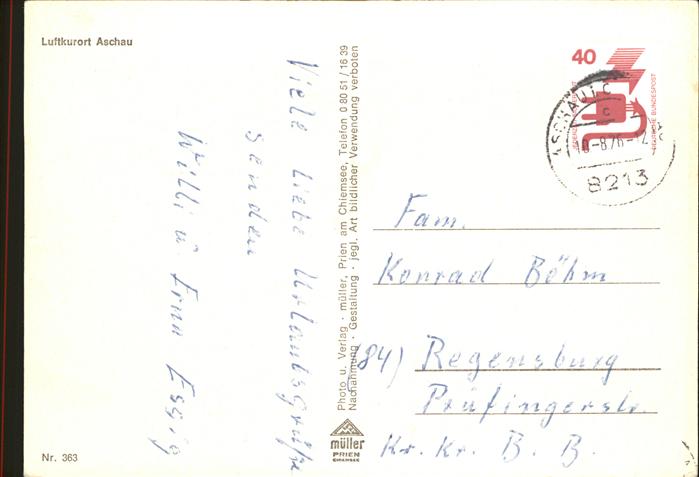 Luftkurort Aschau
Viele liebe Urlaubsgrüße
senden
Willi u. Erna Essig
Nr. 363
Photo u. Verlag · müller, Prien am Chiemsee, Telefon 0 80 51 / 16 39
Nachahmung · Gestaltung · jegl. Art bildlicher Verwendung verboten
müller
PRIEN
CHIEMSEE
40
DEUTSCHE BUNDESPOST
ASCHAU I C
c
10-8.76-12
8213
Fam.
Konrad Böhm
(84) Regensburg
Prüfingerstr.
Kr. Kr. B. B.